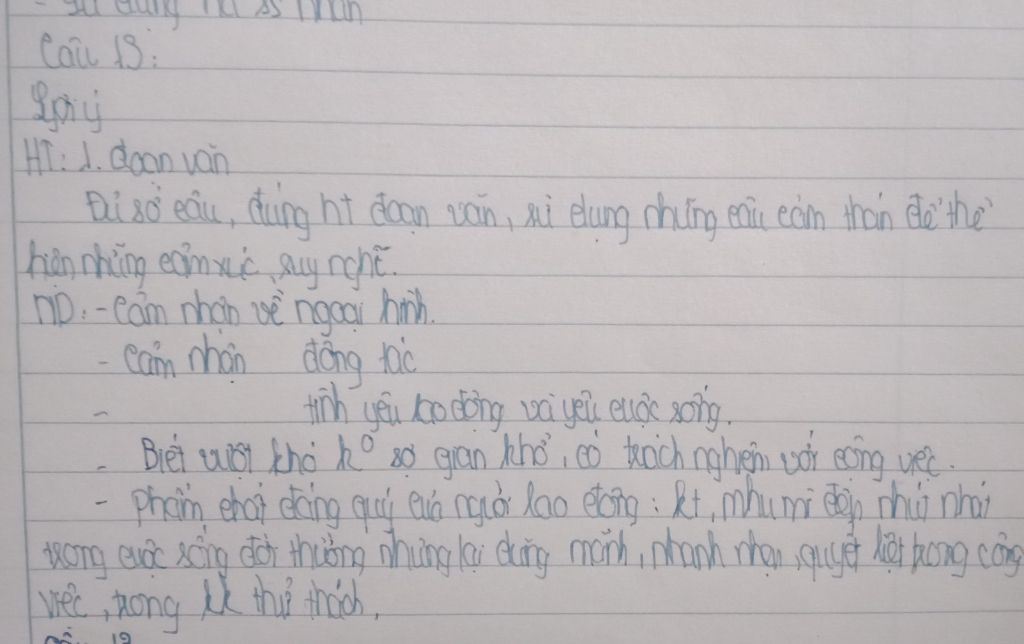 - sử dụng từ so nhân
Câu 13:
Gợi ý
HT: 1. đoạn văn
Đủ số câu, đúng ht đoạn văn, sử dụng những câu cảm thán để thể
hiện những cảm xúc, suy nghĩ.
ND: - Cảm nhận về ngoại hình.
- Cảm nhận động tác
- tình yêu lao động và yêu cuộc sống.
- Biết vượt khó k⁰ sợ gian khổ, có trách nghiệm với công việc.
- phẩm chất đáng quý của người lao động: kt, nhu mì đến nhút nhát
trong cuộc sống đời thường nhưng lại dũng mãnh, nhanh nhẹn, quyết liệt trong công
việc, trong thử thách.